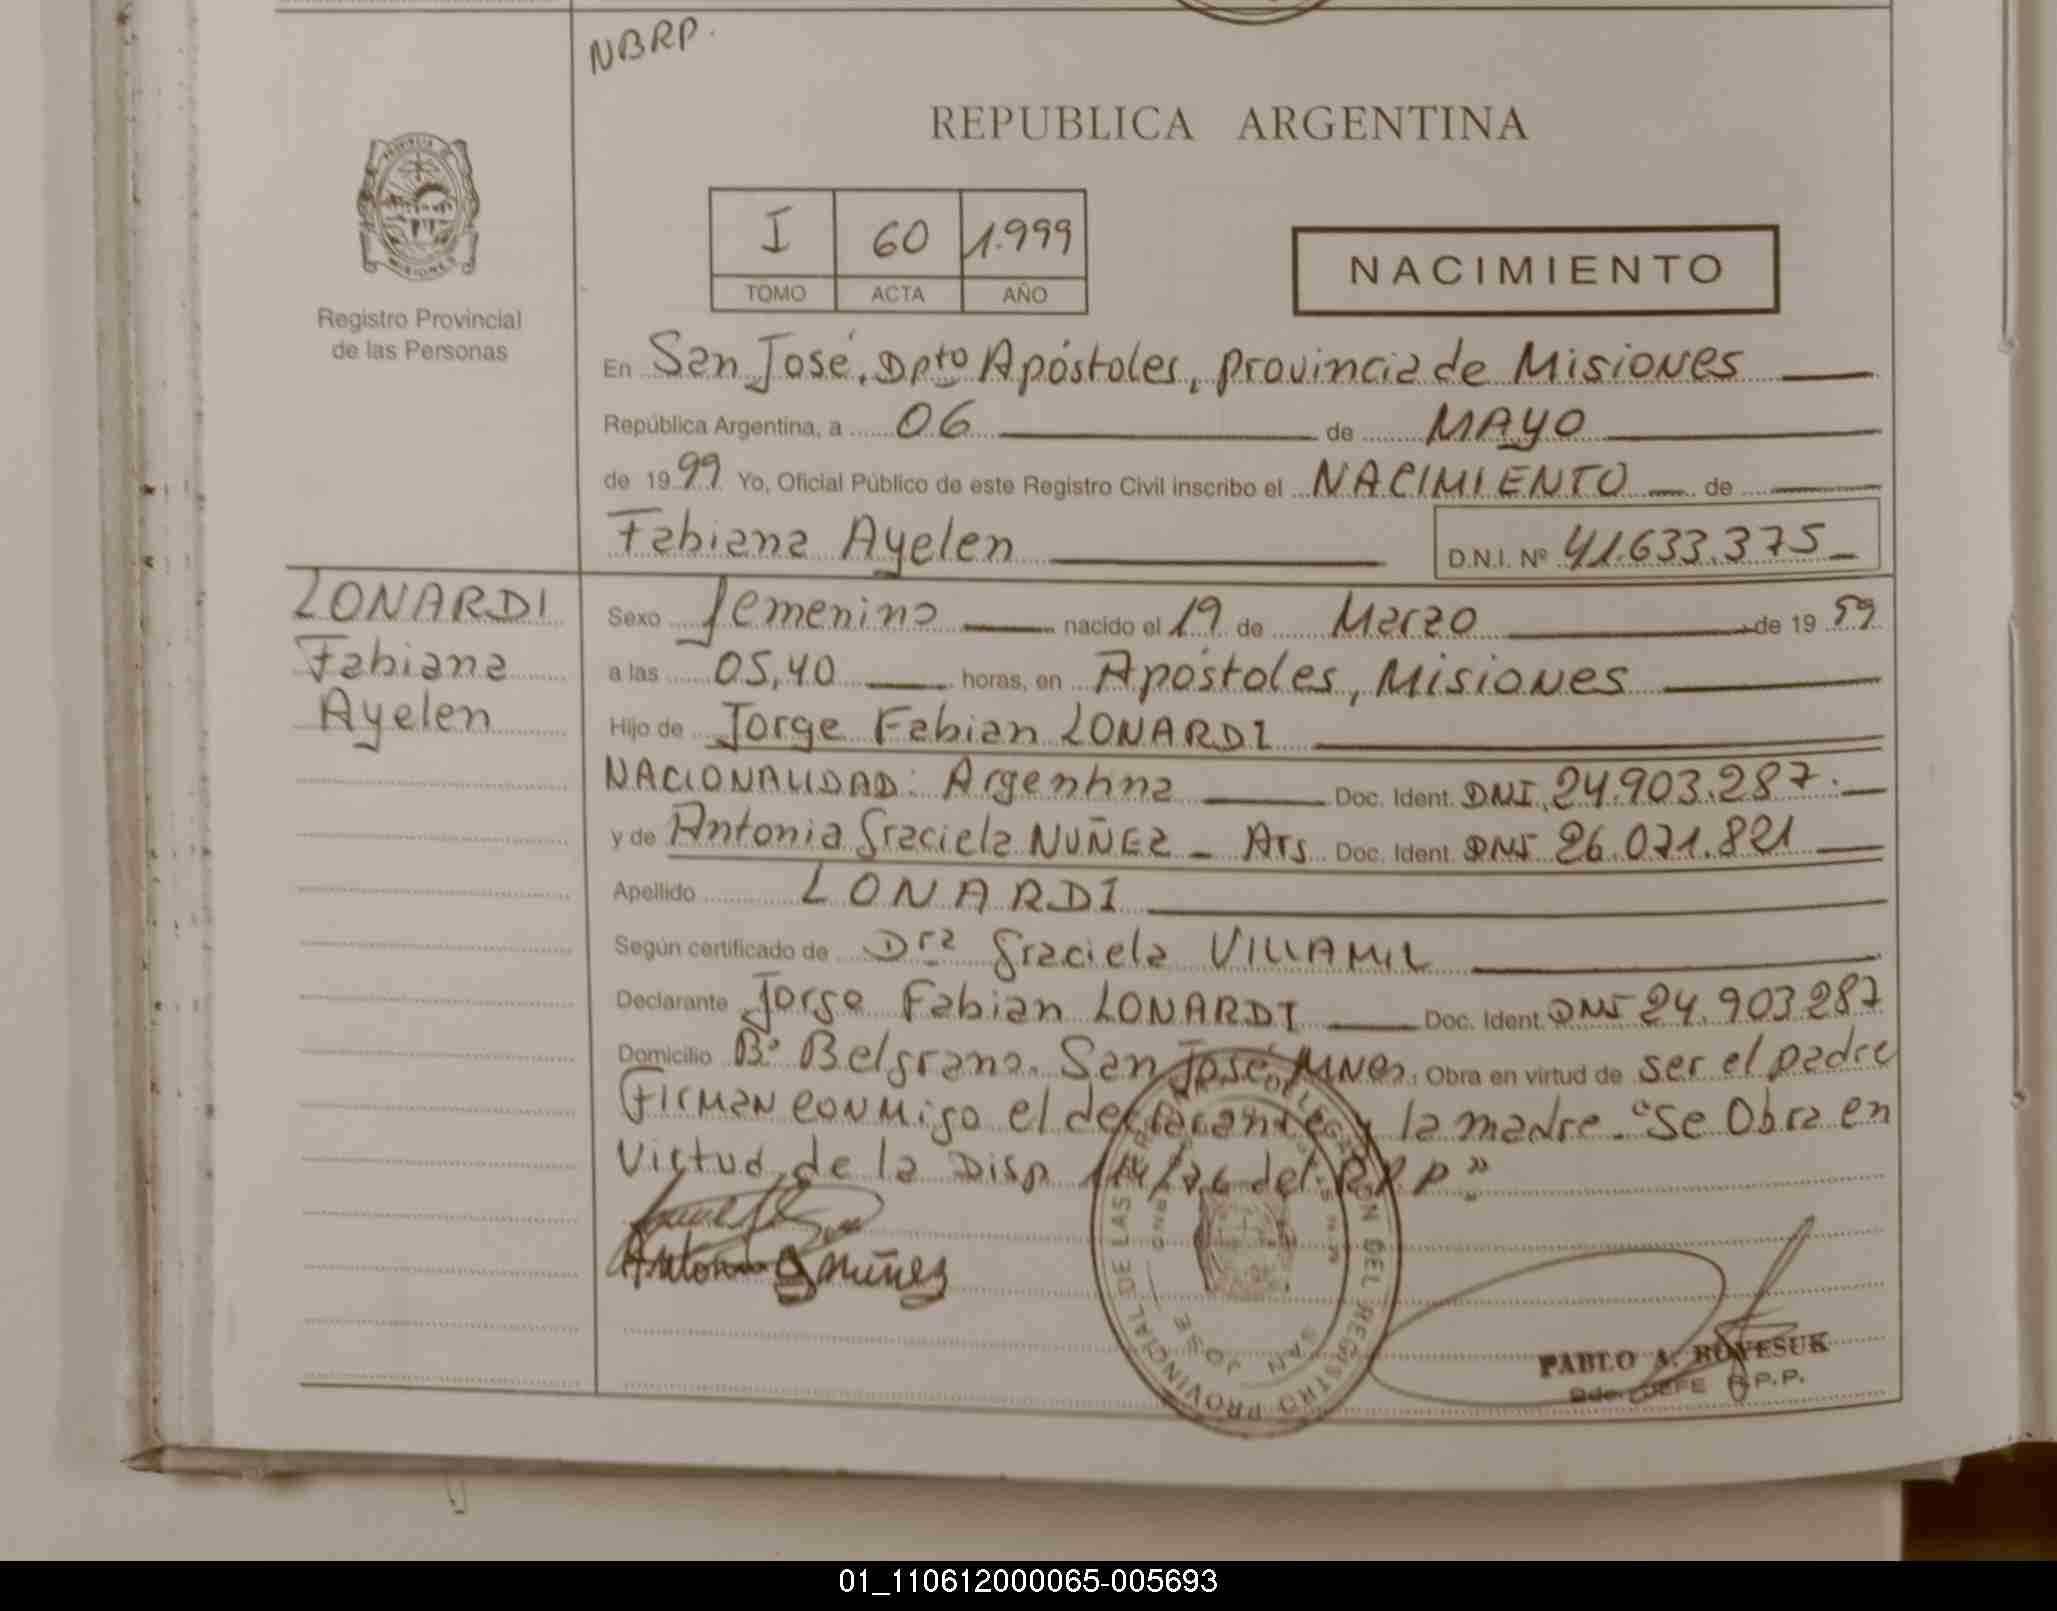 NBRP.
REPUBLICA ARGENTINA
PROVINCIA DE
MISIONES
Registro Provincial
de las Personas
I 60 1.999
TOMO ACTA AÑO
NACIMIENTO
En San José, Dpto Apóstoles, provincia de Misiones
República Argentina, a 06 de MAYO
de 1999 Yo, Oficial Público de este Registro Civil inscribo el NACIMIENTO de
Fabiana Ayelen D.N.I. Nº 41.633.375
LONARDI
Fabiana
Ayelen
Sexo femenino nacido el 19 de Marzo de 1999
a las 05,40 horas, en Apóstoles, Misiones
Hijo de Jorge Fabian LONARDI
NACIONALIDAD: Argentina Doc. Ident. DNI 24.903.287.
y de Antonia Graciela NUÑEZ - Arg Doc. Ident. DNI 26.071.821
Apellido LONARDI
Según certificado de Dra Graciela VILLAMIL
Declarante Jorge Fabian LONARDI Doc. Ident. DNI 24.903287
Domicilio Bº Belgrano. San José, MNES. Obra en virtud de ser el padre
Firman conmigo el declarante y la madre. "Se Obra en
Virtud de la Disp 114/76 del R.P.P"
Antonia G Nuñez
REGISTRO PROVINCIAL DE LAS
DELEGACION DEL
SAN JOSE
PABLO A. ROVESUK
JEFE R.P.P.
01_110612000065-005693